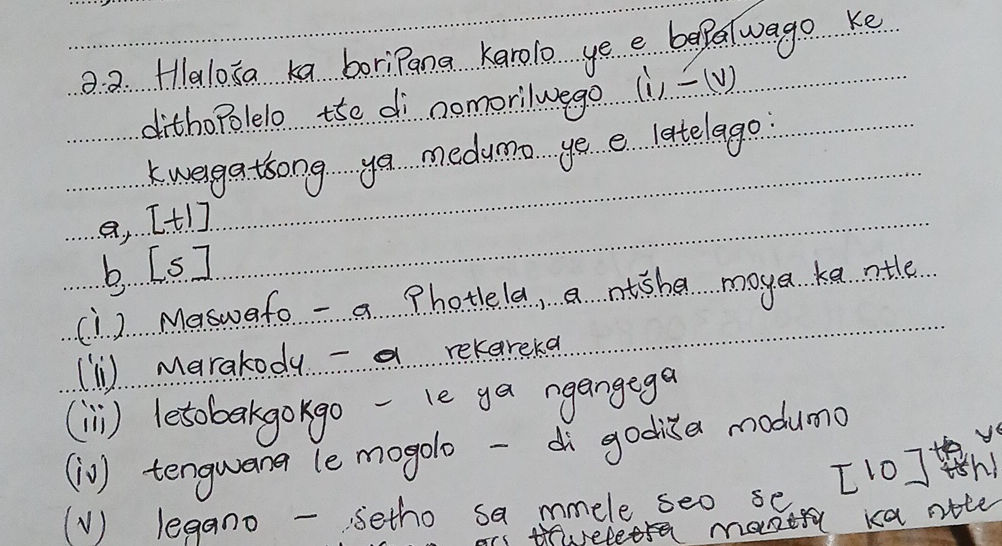 2.2. Hlaloša ka boripana karolo ye e bapalwago ke
dithopolelo tše di nomorilwego (i) - (v)
kwagatšong ya medumo ye e latelago:
a, [tl]
b, [s]
(i) Maswafo - a Photlela, a ntšha moya ka ntle
(ii) Marakody - a rekareka
(iii) letobakgokgo - le ya ngangega
(iv) tengwana le mogolo - di godiša modumo
(v) legano - setho sa mmele seo se [10]
ka ntle